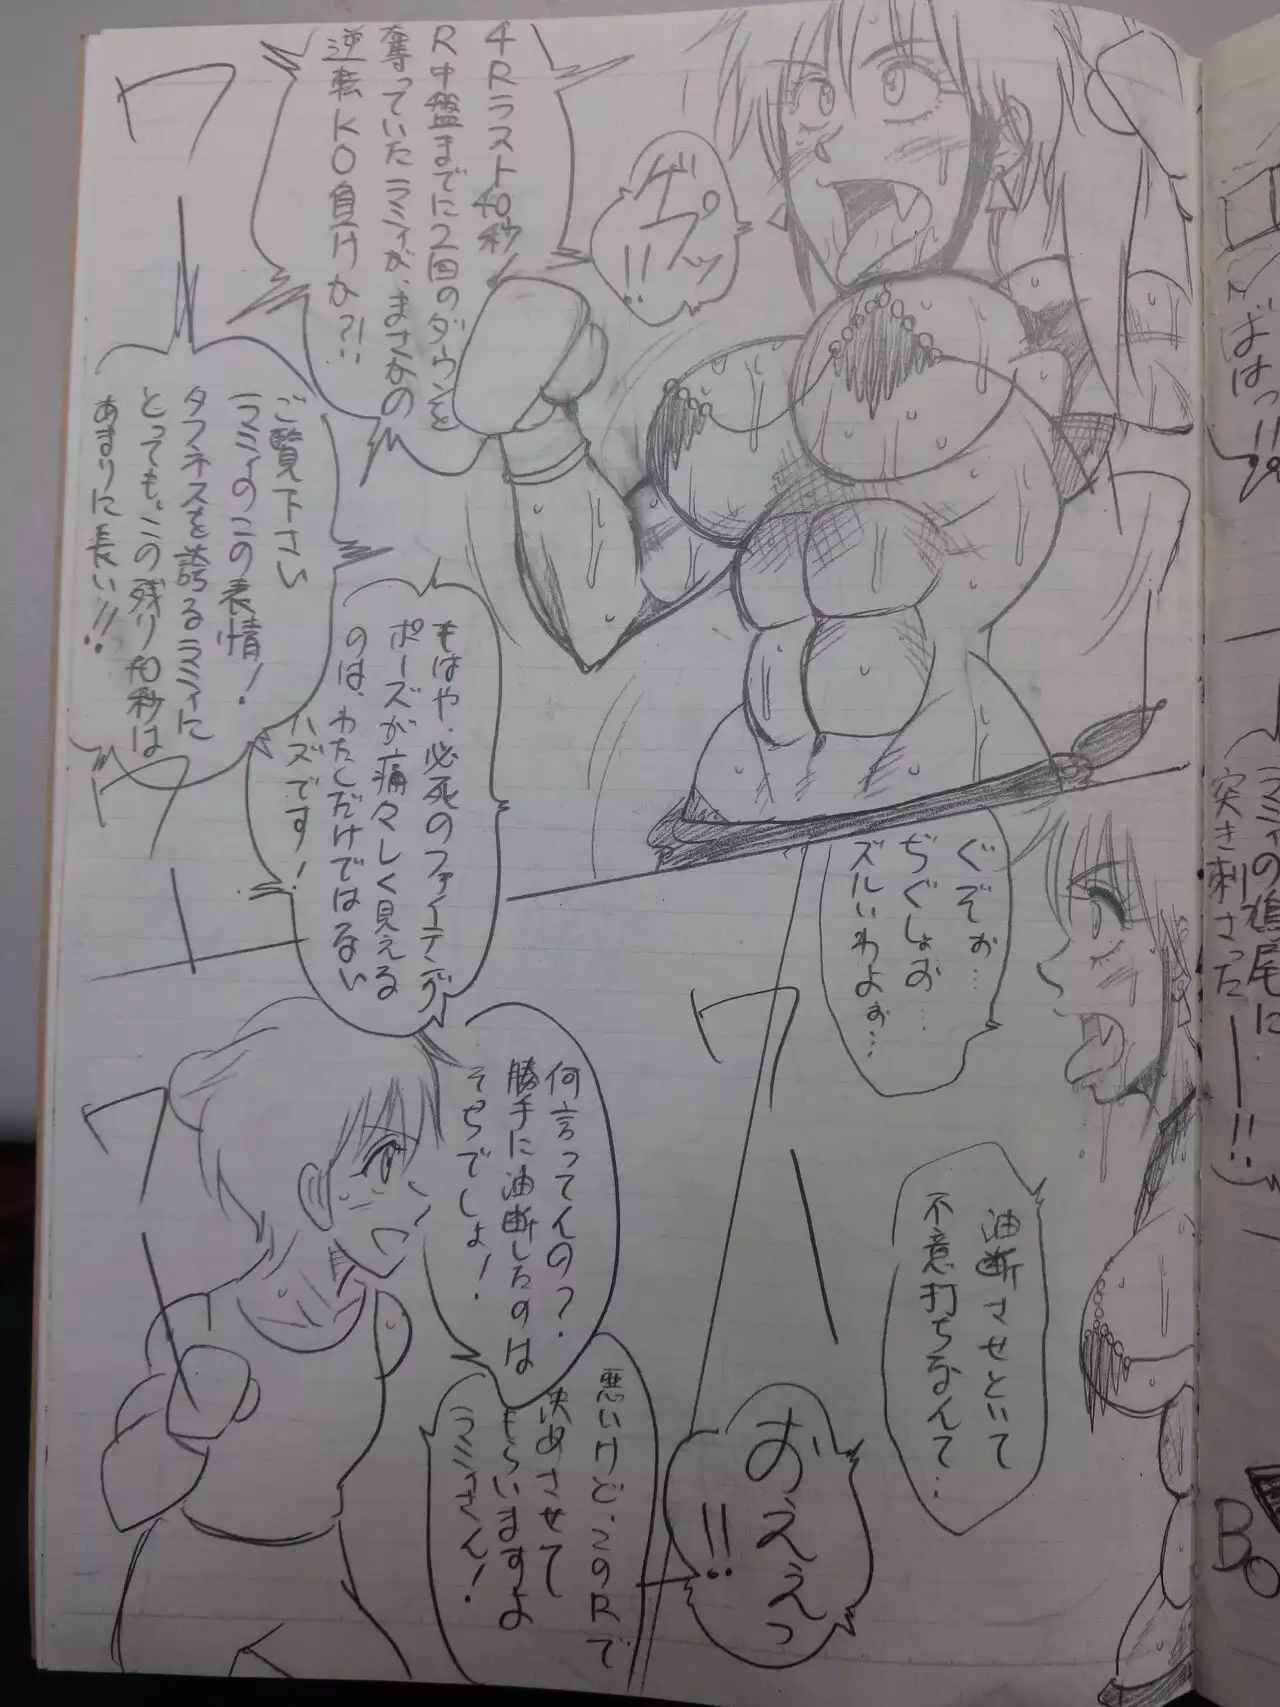 ばはっ!!
ラミィの鳩尾に
突き刺さったー!!
ゲプッ
!!
4Rラスト40秒
R中盤までに2回のダウンを
奪っていたラミィが、まさかの
逆転KO負けか?!!
ワ
ー
ご覧下さい
ラミィのこの表情!
タフネスを誇るラミィに
とっても、この残り40秒は
あまりに長い!!
ワ
ー
もはや、必死のファイティング
ポーズが痛々しく見える
のは、わたしだけではない
ハズです!
ぐぞぉ…
ぢぐしょお…
ズルいわよぉ…
油断させといて
不意打ちなんて…
ワ
ー
おえぇっ
!!
何言ってんの?
勝手に油断したのは
そっちでしょ!
悪いけど、このRで
決めさせて
もらいますよ
ラミさん!
ワ
ー